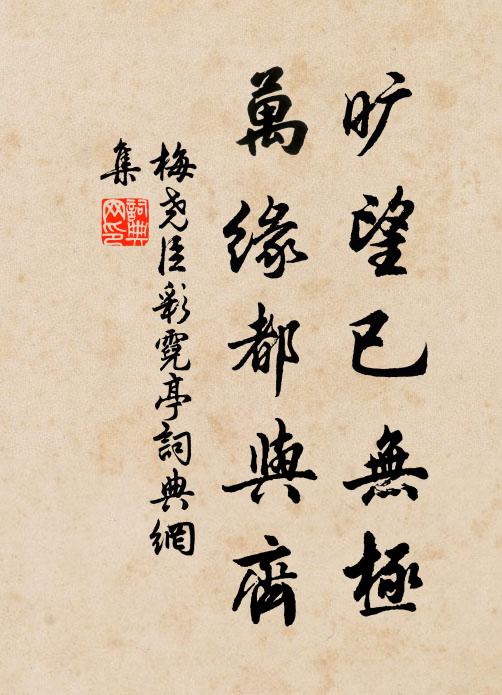 旷望已無極
萬緣都與齊
梅尧臣彩霓亭詞典網
集
詞典
网印